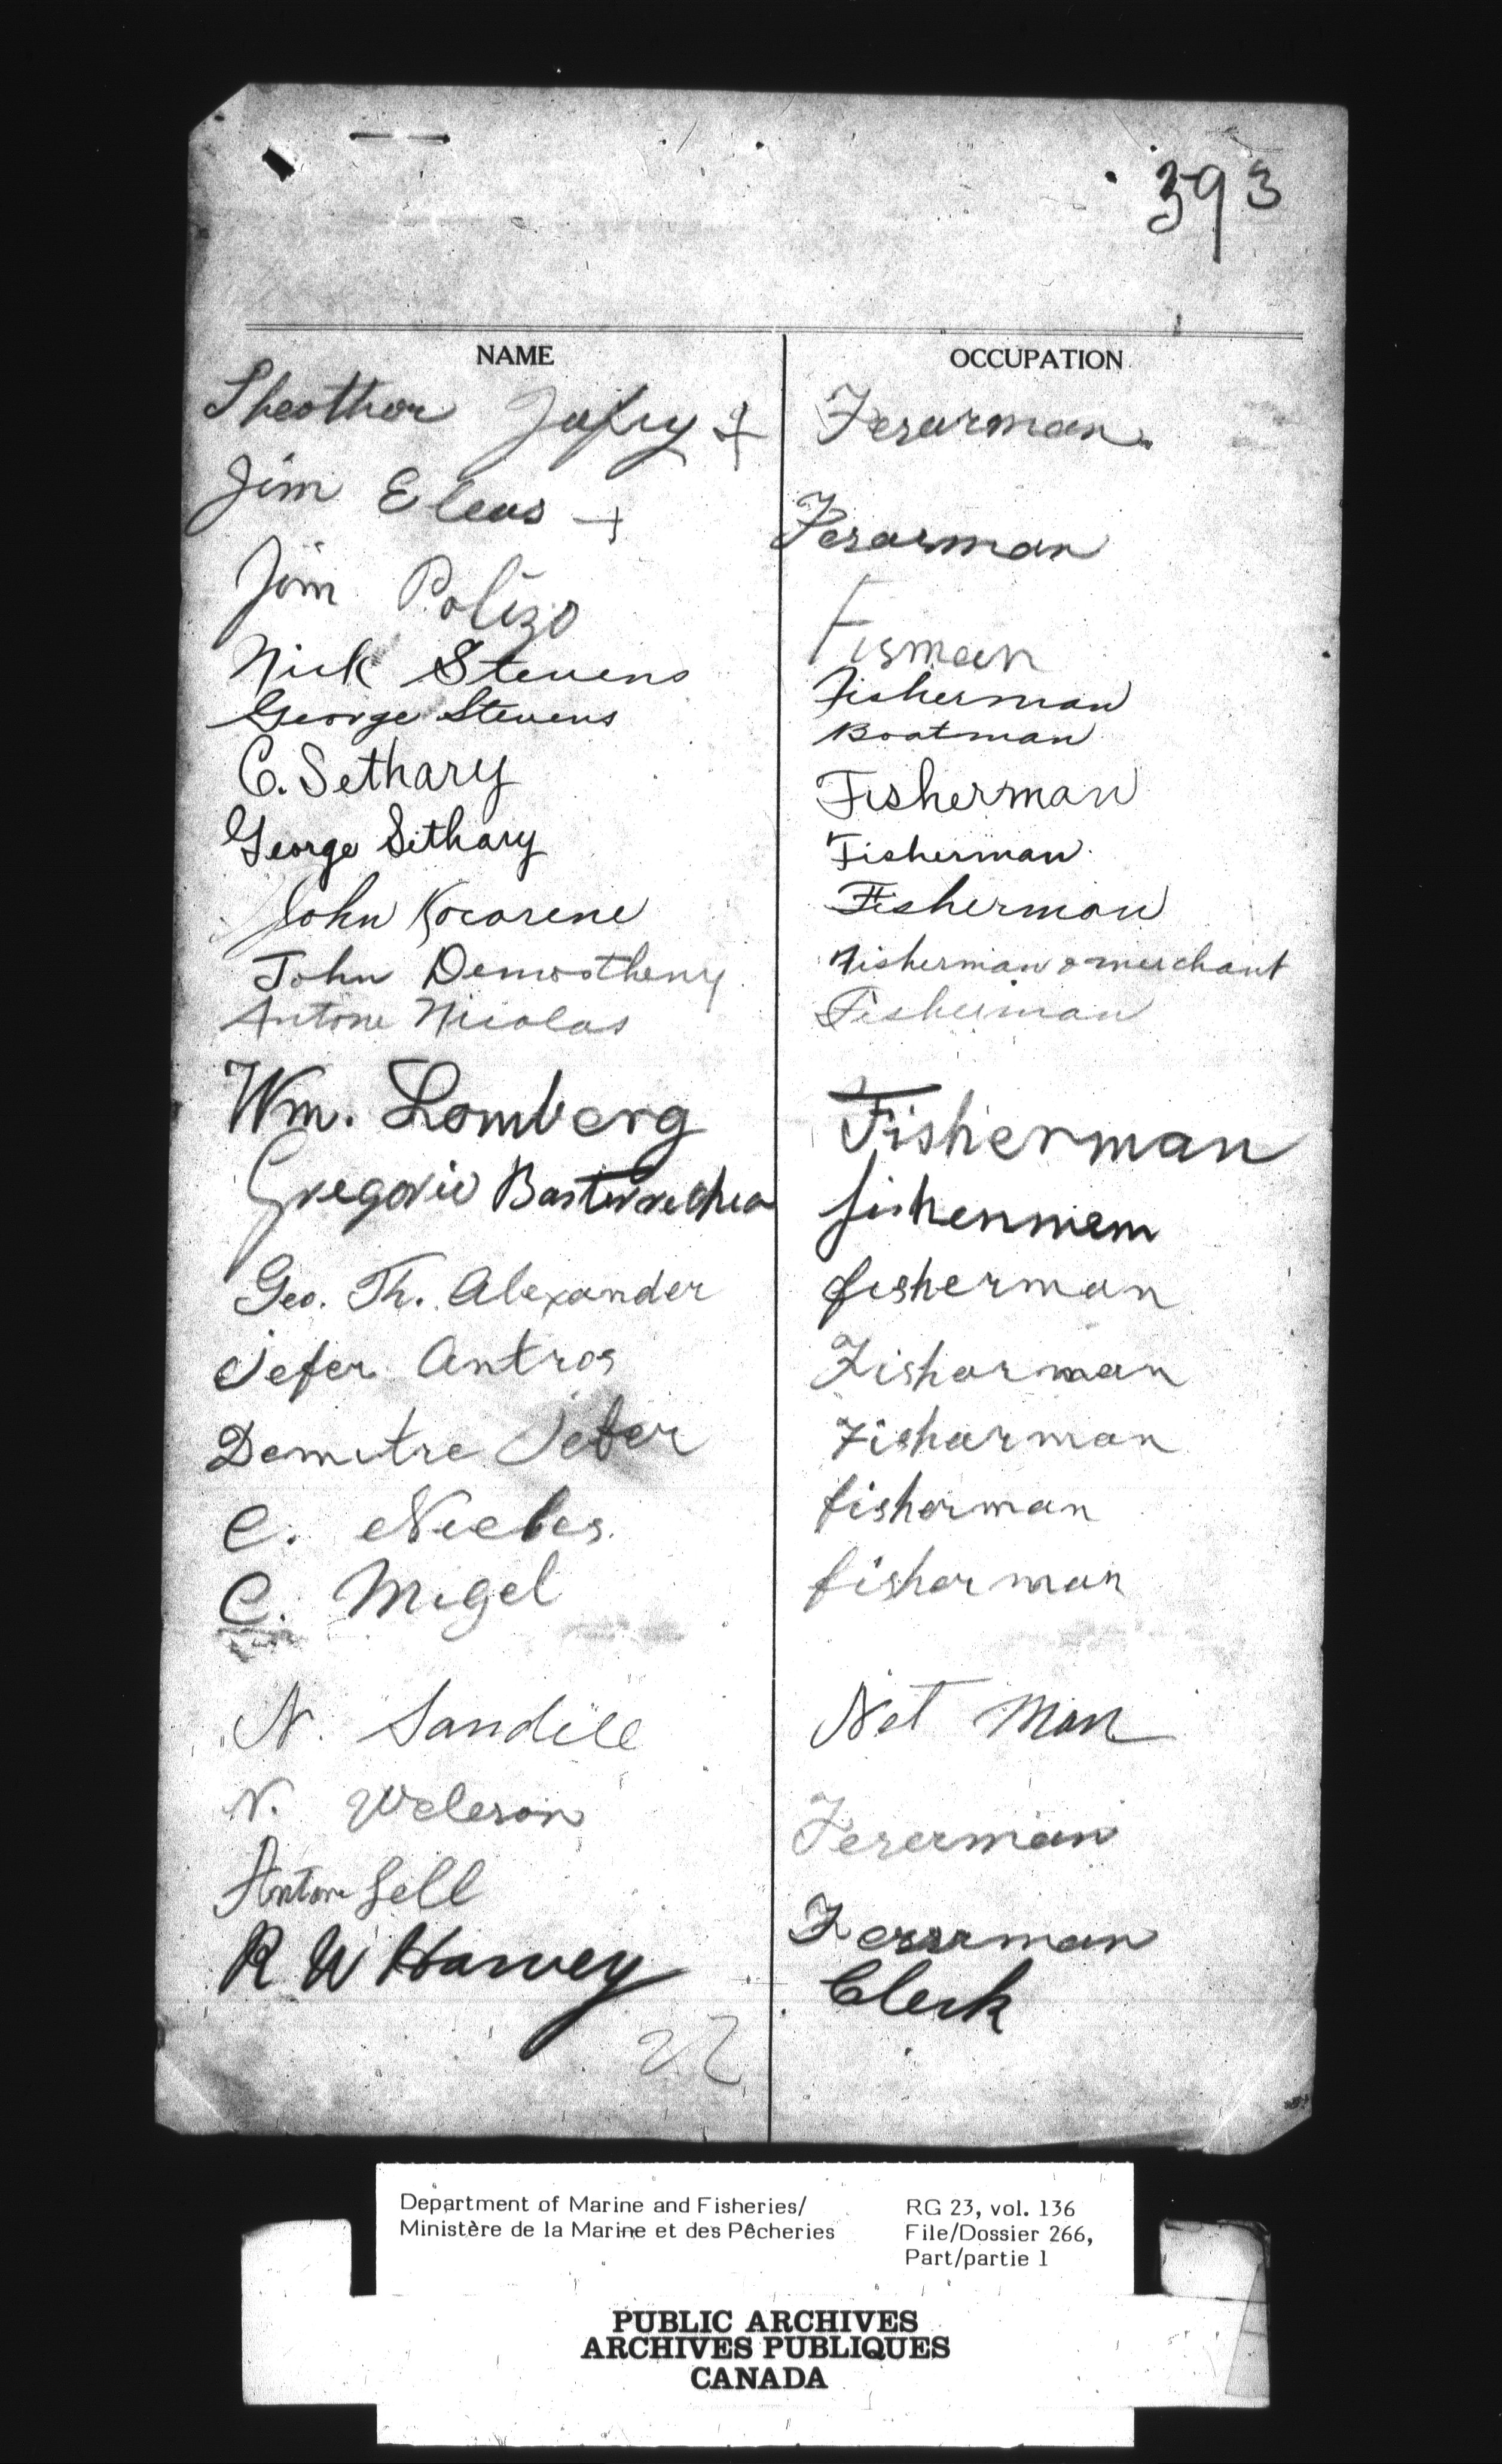 393
NAME OCCUPATION
Sheother Jafry + Feserman.
Jim Eleas + Feserman
Jim Polizo Fisman
Nick Stevens Fisherman
George Stevens Boatman
C. Sethary Fisherman
George Sithary Fisherman
John Kocorene Fisherman
John Demostheny Fisherman & merchant
Antone Nicolas Fisherman
Wm. Lomberg Fisherman
Gregorio Basterrechea fishenmem
Geo. Th. Alexander fisherman
Peter Antros Fisharman
Demitre Peter Fisharman
C. Neebes. fisherman
C. Migel fisherman
N. Sandell Net Man
N. Weleson Fererman
Anton Sell Feserman
R W Harvey Clerk
22
Department of Marine and Fisheries/ RG 23, vol. 136
Ministère de la Marine et des Pêcheries File/Dossier 266,
Part/partie 1
PUBLIC ARCHIVES
ARCHIVES PUBLIQUES
CANADA